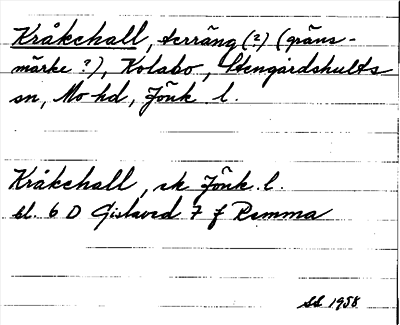 Kråkehall, terräng (?) (gräns-
märke ?), Kolabo, Stengårdshults
sn, Mo hd, Jönk. l.
Kråkehall, ek Jönk. l.
bl. 6 D Gislaved 7 f Remma
SS 1958